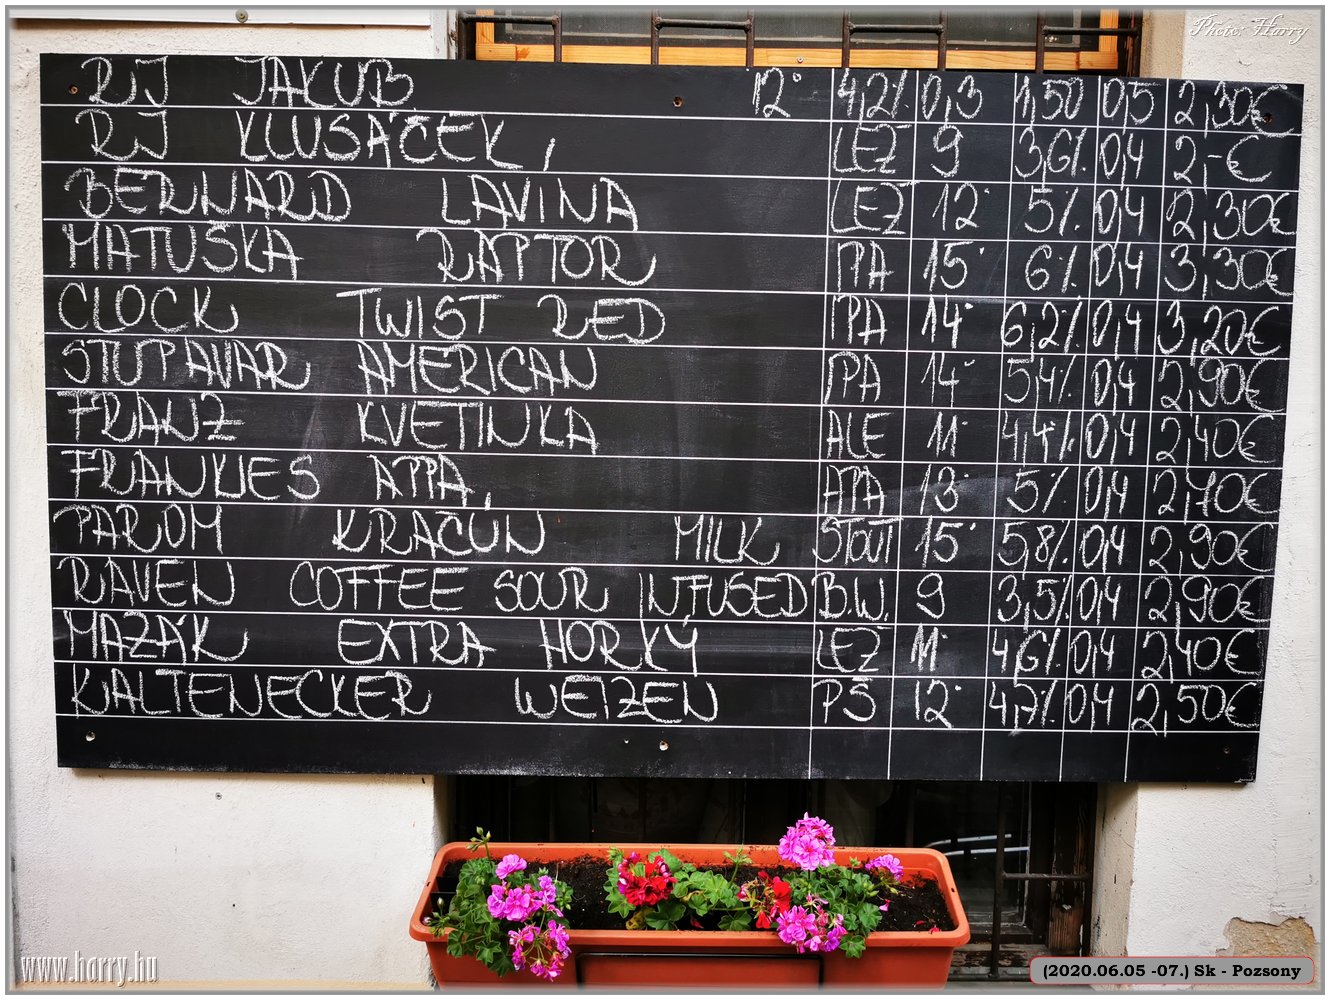 Photo: Harry
RJ JAKUB 12° 4,2% 0,3 1,50 0,5 2,30€
RJ KLUSÁČEK, LEŽ 9 3,6% 0,4 2,-€
BERNARD LAVINA LEŽ 12 5% 0,4 2,30€
MATUŠKA RAPTOR IPA 15° 6% 0,4 3,30€
CLOCK TWIST RED IPA 14° 6,2% 0,4 3,20€
STUPAVAR AMERICAN IPA 14° 5,4% 0,4 2,90€
FRANZ KVETINKA ALE 11° 4,4% 0,4 2,40€
FRANKIES APPA, APA 13° 5% 0,4 2,70€
PAROM KRAČUN MILK STOUT 15° 5,8% 0,4 2,90€
RAVEN COFFEE SOUR INFUSED B.W. 9 3,5% 0,4 2,90€
MAZÁK EXTRA HORKÝ LEŽ 11° 4,6% 0,4 2,40€
KALTENECKER WEIZEN PŠ 12° 4,7% 0,4 2,50€
www.harry.hu
(2020.06.05 -07.) Sk - Pozsony